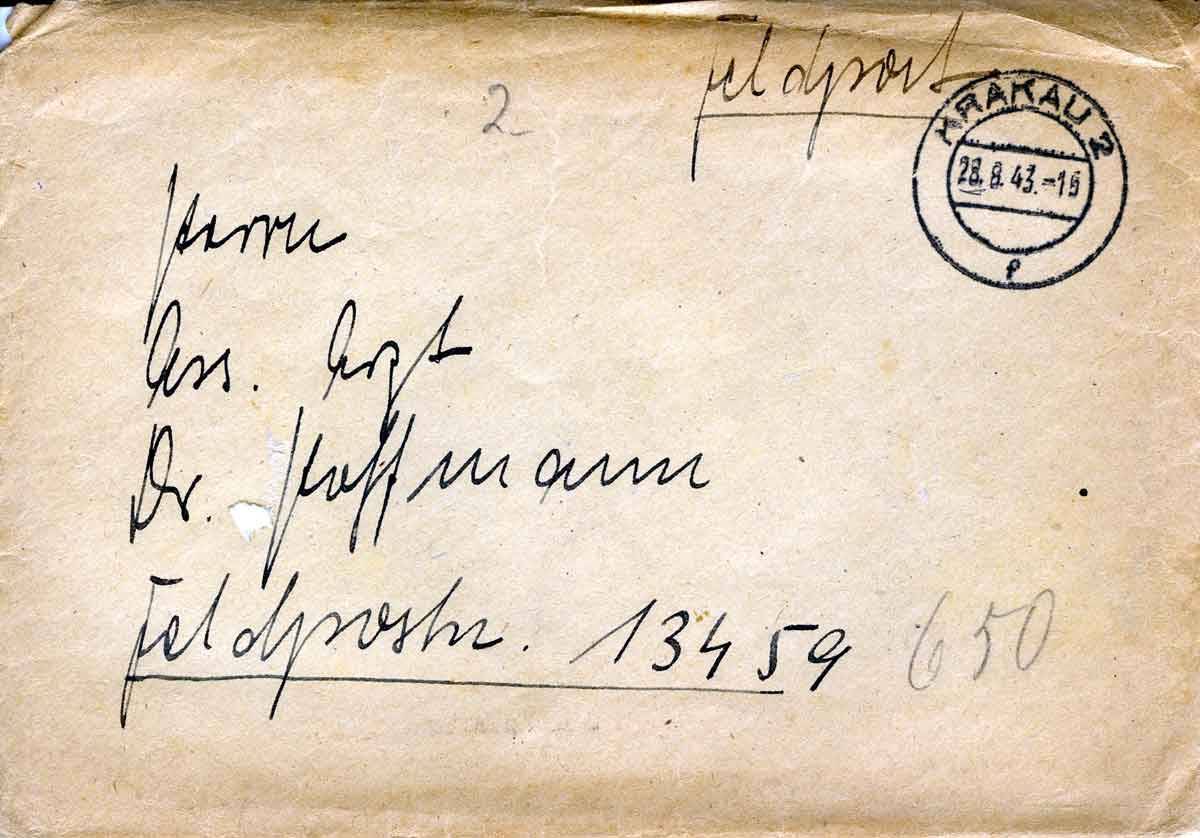 2
Feldpost
KRAKAU 2
28.8.43.-16
f
Herrn
Ass. Arzt
Dr. Hoffmann
Feldpostnr. 13459
650